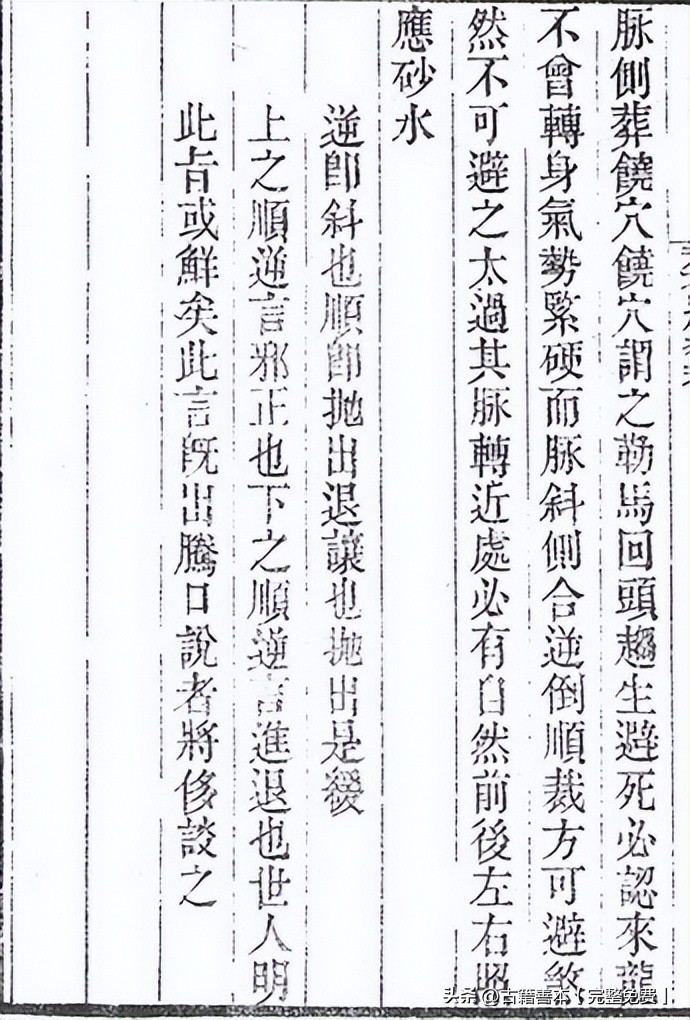 脉側葬饒穴饒穴謂之勒馬回頭趨生避死必認來龍
不曾轉身氣勢緊硬而脉斜側合逆倒順裁方可避煞
然不可避之太過其脉轉近處必有自然前後左右照
應砂水
逆卽斜也順卽拋出退讓也拋出是緩
上之順逆言邪正也下之順逆言進退也世人明
此㫖或鮮矣此言旣出騰口說者將侈談之
头条 @古籍善本【完整免费】